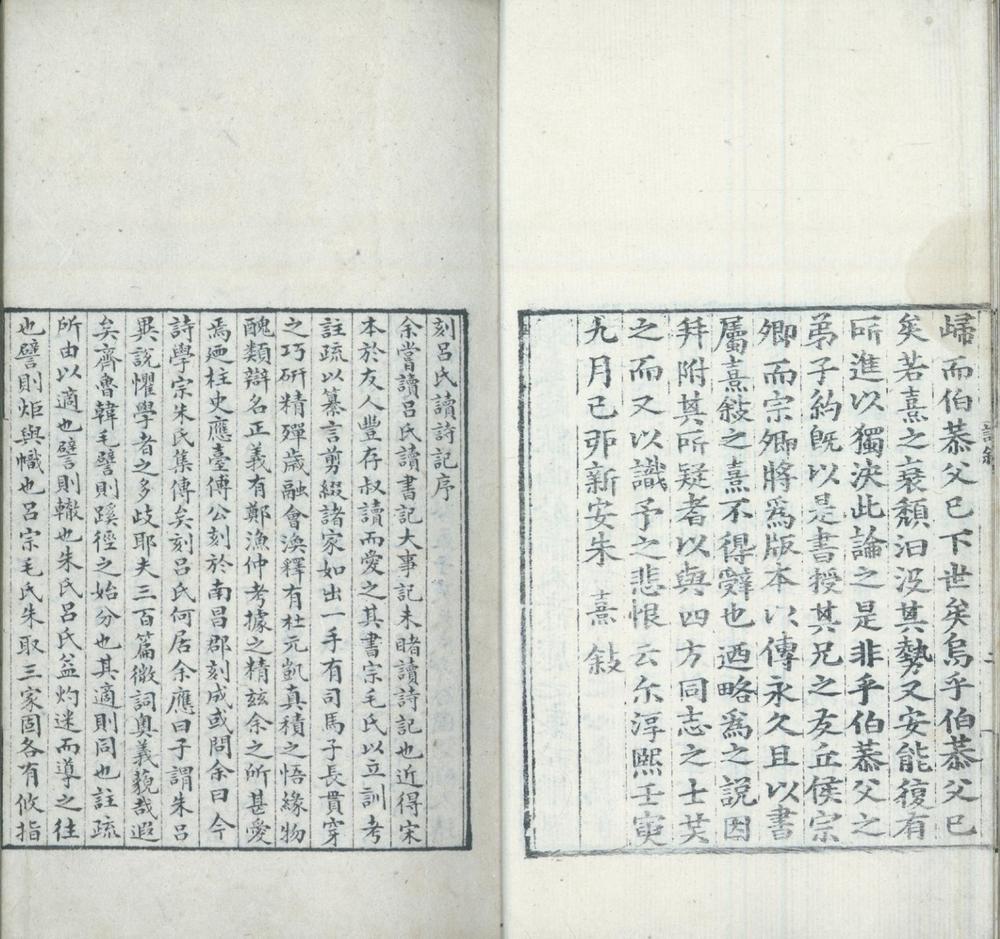 歸而伯恭父已下世矣烏乎伯恭父已
矣若熹之衰頹汩沒其勢又安能復有
所進以獨決此論之是非乎伯恭父之
弟子約旣以是書授其兄之友丘侯宗
卿而宗卿將爲版本以傳永久且以書
屬熹敍之熹不得辭也迺略爲之說因
幷附其所疑者以與四方同志之士共
之而又以識予之悲恨云尒淳熙壬寅
九月己卯新安朱熹敍
刻呂氏讀詩記序
余嘗讀呂氏讀書記大事記未睹讀詩記也近得宋
本於友人豐存叔讀而愛之其書宗毛氏以立訓考
註疏以纂言剪綴諸家如出一手有司馬子長貫穿
之巧研精殫歲融會渙釋有杜元凱真積之悟緣物
醜類辯名正義有鄭漁仲考據之精茲余之所甚愛
焉迺柱史應臺傅公刻於南昌郡刻成或問余曰今
詩學宗朱氏集傳矣刻呂氏何居余應曰子謂朱呂
異說懼學者之多歧耶夫三百篇微詞奧義藐哉遐
矣齊魯韓毛譬則蹊徑之始分也其適則同也註疏
所由以適也譬則轍也朱氏呂氏蓋灼迷而導之往
也譬則炬與幟也呂宗毛氏朱取三家固各有攸指